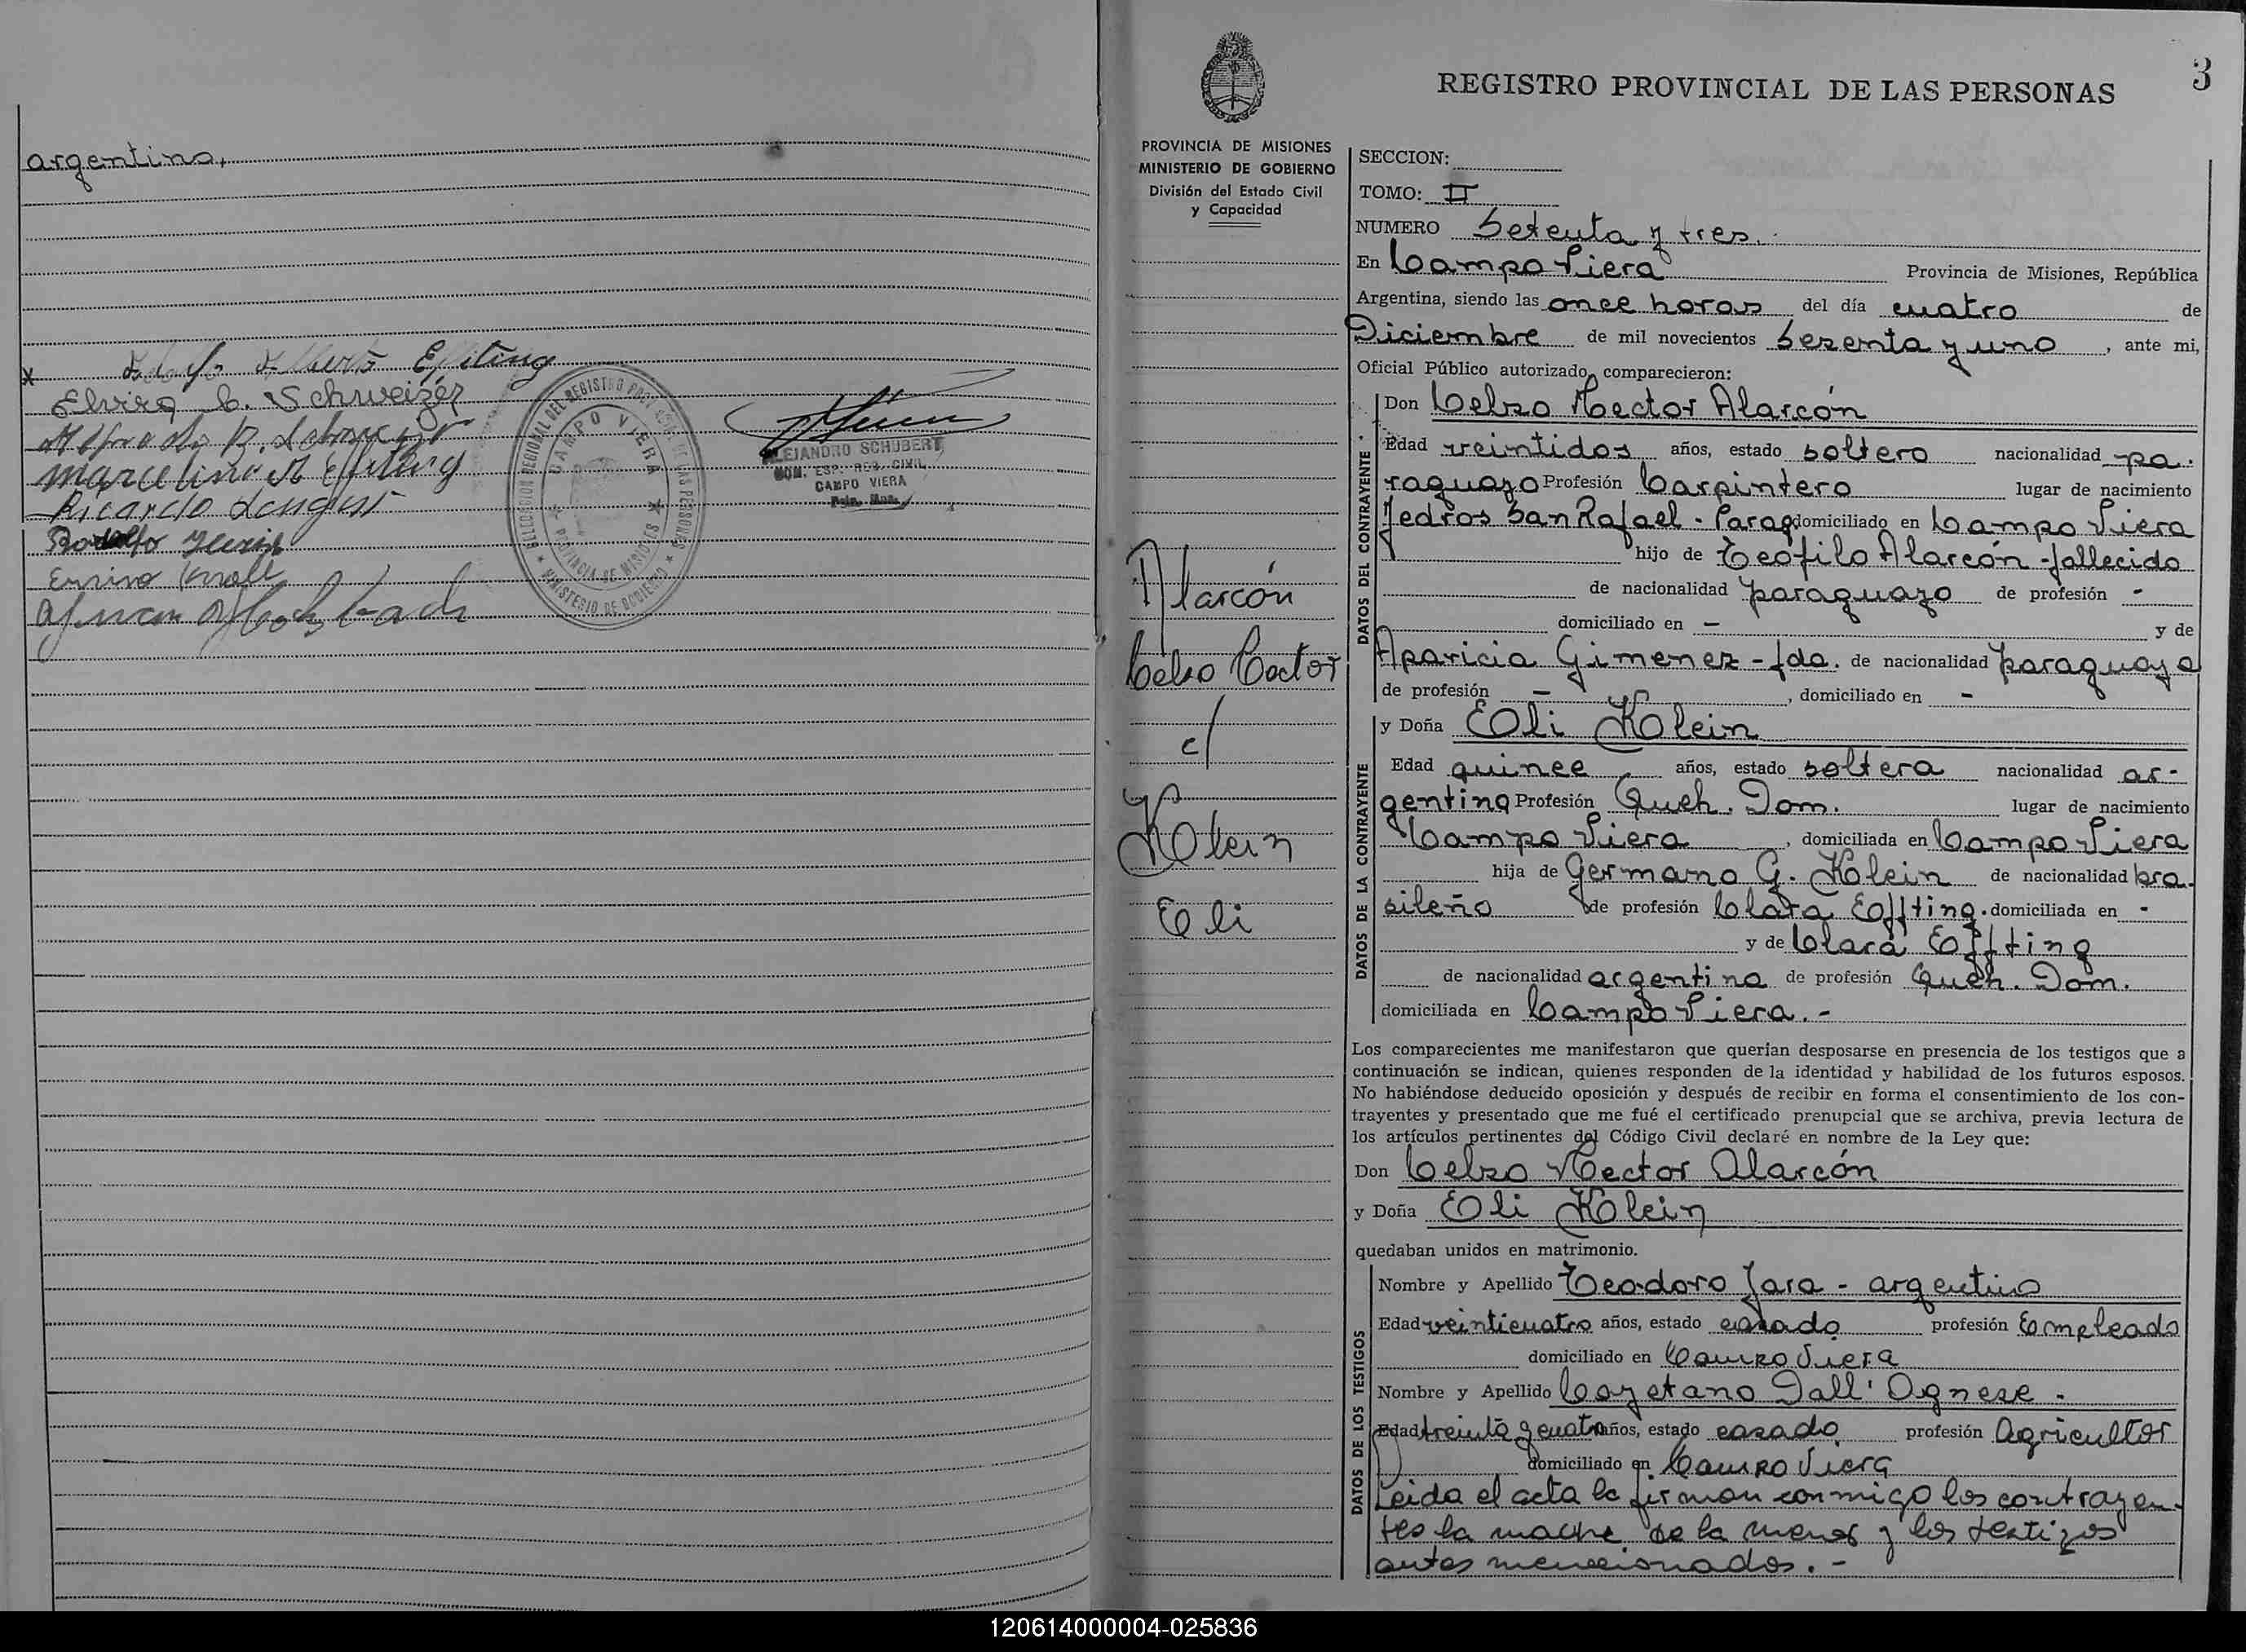 argentina,
Adolfo Alberto Effting
Elvira C. Schweizer
Marcelino A Effting
Ricardo
Rodolfo
DELEGACION REGIONAL DEL REGISTRO PROVINCIAL DE LAS PERSONAS
CAMPO VIERA
PROVINCIA DE MISIONES
MINISTERIO DE GOBIERNO
ALEJANDRO SCHUBERT
CAMPO VIERA
3
REGISTRO PROVINCIAL DE LAS PERSONAS
PROVINCIA DE MISIONES
MINISTERIO DE GOBIERNO
División del Estado Civil
y Capacidad
Alarcón
Celso Hector
c/
Klein
Eli
SECCION:
TOMO: II
NUMERO Setenta y tres.
En Campo Viera Provincia de Misiones, República
Argentina, siendo las once horas del día cuatro de
Diciembre de mil novecientos sesenta y uno, ante mi,
Oficial Público autorizado, comparecieron:
DATOS DEL CONTRAYENTE
Don Celso Hector Alarcón
Edad veintidos años, estado soltero nacionalidad pa-
raguayo Profesión Carpintero lugar de nacimiento
Pedros San Rafael - Parag domiciliado en Campo Viera
hijo de Teofilo Alarcón - fallecido
de nacionalidad paraguayo de profesión -
domiciliado en - y de
Aparicia Gimenez - fda. de nacionalidad paraguaya
de profesión -, domiciliado en -
DATOS DE LA CONTRAYENTE
y Doña Eli Klein
Edad quince años, estado soltera nacionalidad ar-
gentina Profesión Queh. Dom. lugar de nacimiento
Campo Viera, domiciliada en Campo Viera
hija de Germano G. Klein de nacionalidad bra-
sileño de profesión Clara Effting. domiciliada en -
y de Clara Effting
de nacionalidad argentina de profesión Queh. Dom.
domiciliada en Campo Viera.-
Los comparecientes me manifestaron que querían desposarse en presencia de los testigos que a
continuación se indican, quienes responden de la identidad y habilidad de los futuros esposos.
No habiéndose deducido oposición y después de recibir en forma el consentimiento de los con-
trayentes y presentado que me fué el certificado prenupcial que se archiva, previa lectura de
los artículos pertinentes del Código Civil declaré en nombre de la Ley que:
Don Celso Hector Alarcón
y Doña Eli Klein
quedaban unidos en matrimonio.
DATOS DE LOS TESTIGOS
Nombre y Apellido Teodoro Jara - argentino
Edad veinticuatro años, estado casado profesión Empleado
domiciliado en Campo Viera
Nombre y Apellido Cayetano Dall' Ognese.
Edad treinta y cuatro años, estado casado profesión Agricultor
domiciliado en Campo Viera
Leida el acta la firman conmigo los contrayen-
tes la madre de la menor y los testigos
antes mencionados.-
120614000004-025836